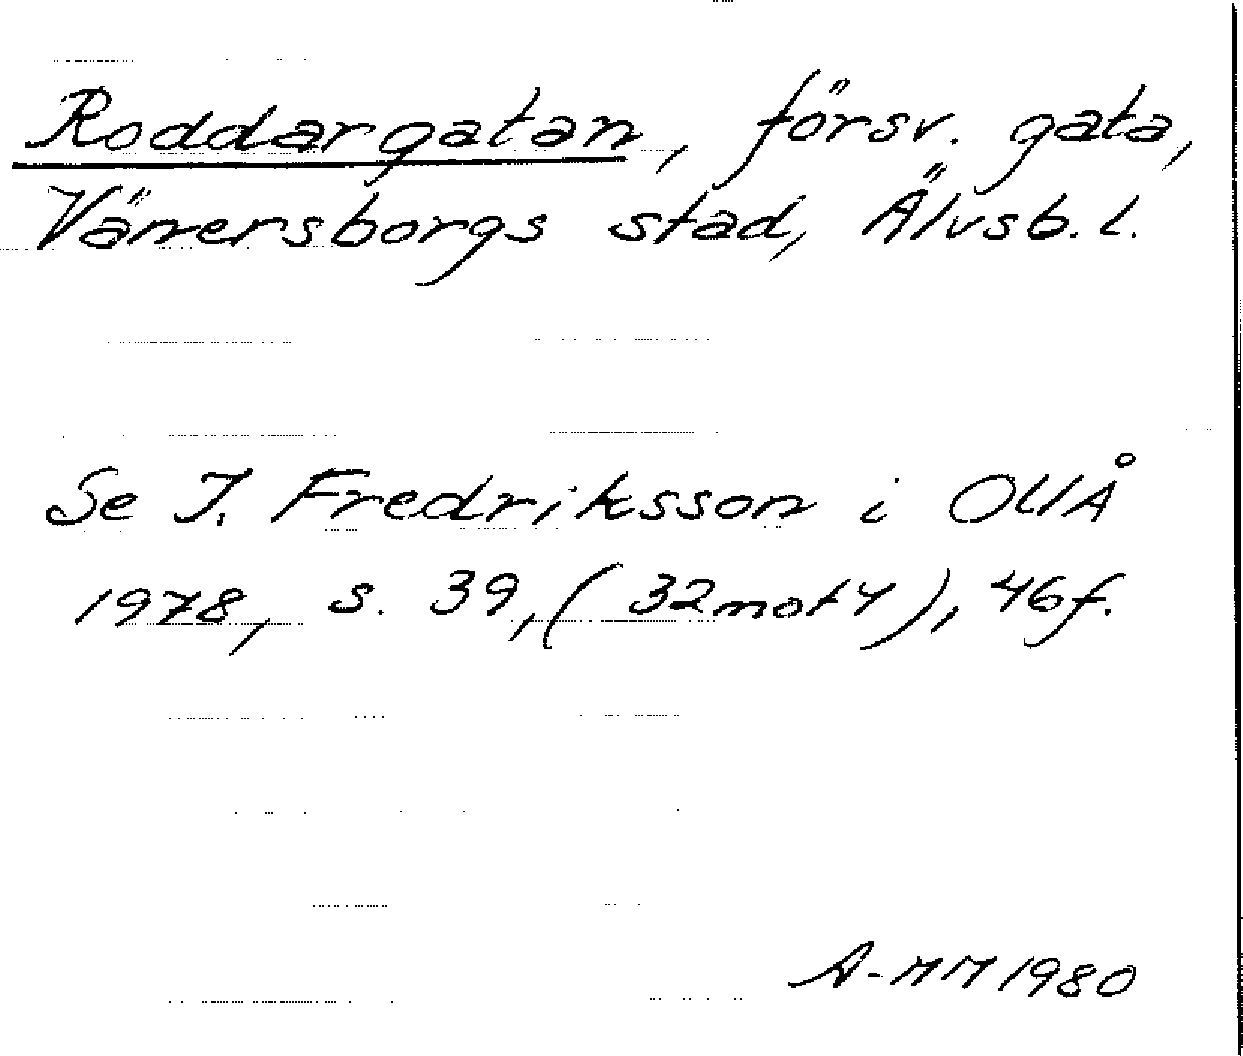 Roddargatan, försv. gata,
Vänersborgs stad, Älvsb. l.
Se I. Fredriksson i OUÅ
1978, s. 39, (32 not 4), 46f.
A-MM 1980